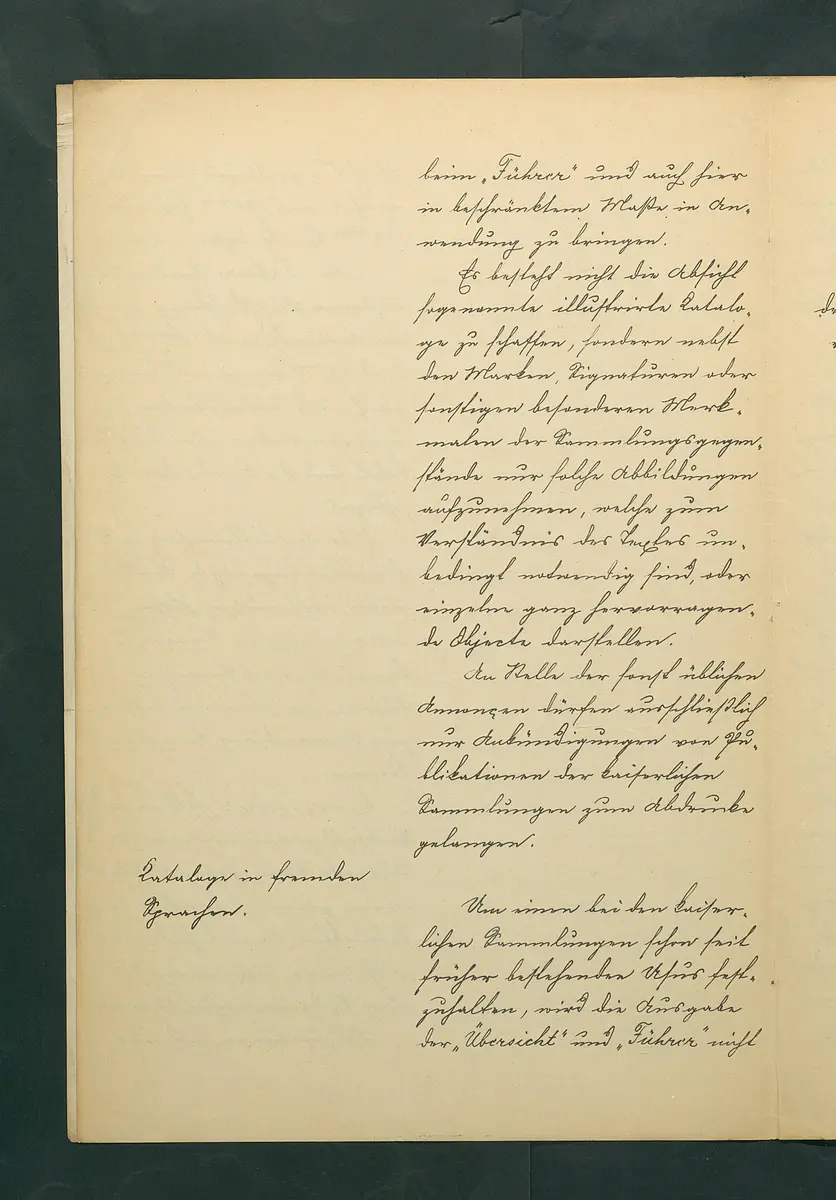 beim „Führer“ und auch hier
in beschränktem Maße in An-
wendung zu bringen.
Es besteht nicht die Absicht
sogenannte illustrirte Katalo-
ge zu schaffen, sondern nebst
den Marken, Signaturen oder
sonstigen besonderen Merk-
malen der Sammlungsgegen-
stände nur solche Abbildungen
aufzunehmen, welche zum
Verständnis des Textes un-
bedingt notwendig sind, oder
einzelne ganz hervorragen-
de Objecte darstellen.
An Stelle der sonst üblichen
Annonçen dürfen ausschließlich
nur Ankündigungen von Pu-
blikationen der kaiserlichen
Sammlungen zum Abdrucke
gelangen.
Kataloge in fremden
Sprachen.
Um einen bei den kaiser-
lichen Sammlungen schon seit
früher bestehenden Usus fest-
zuhalten, wird die Ausgabe
der „Übersicht“ und „Führer“ nicht